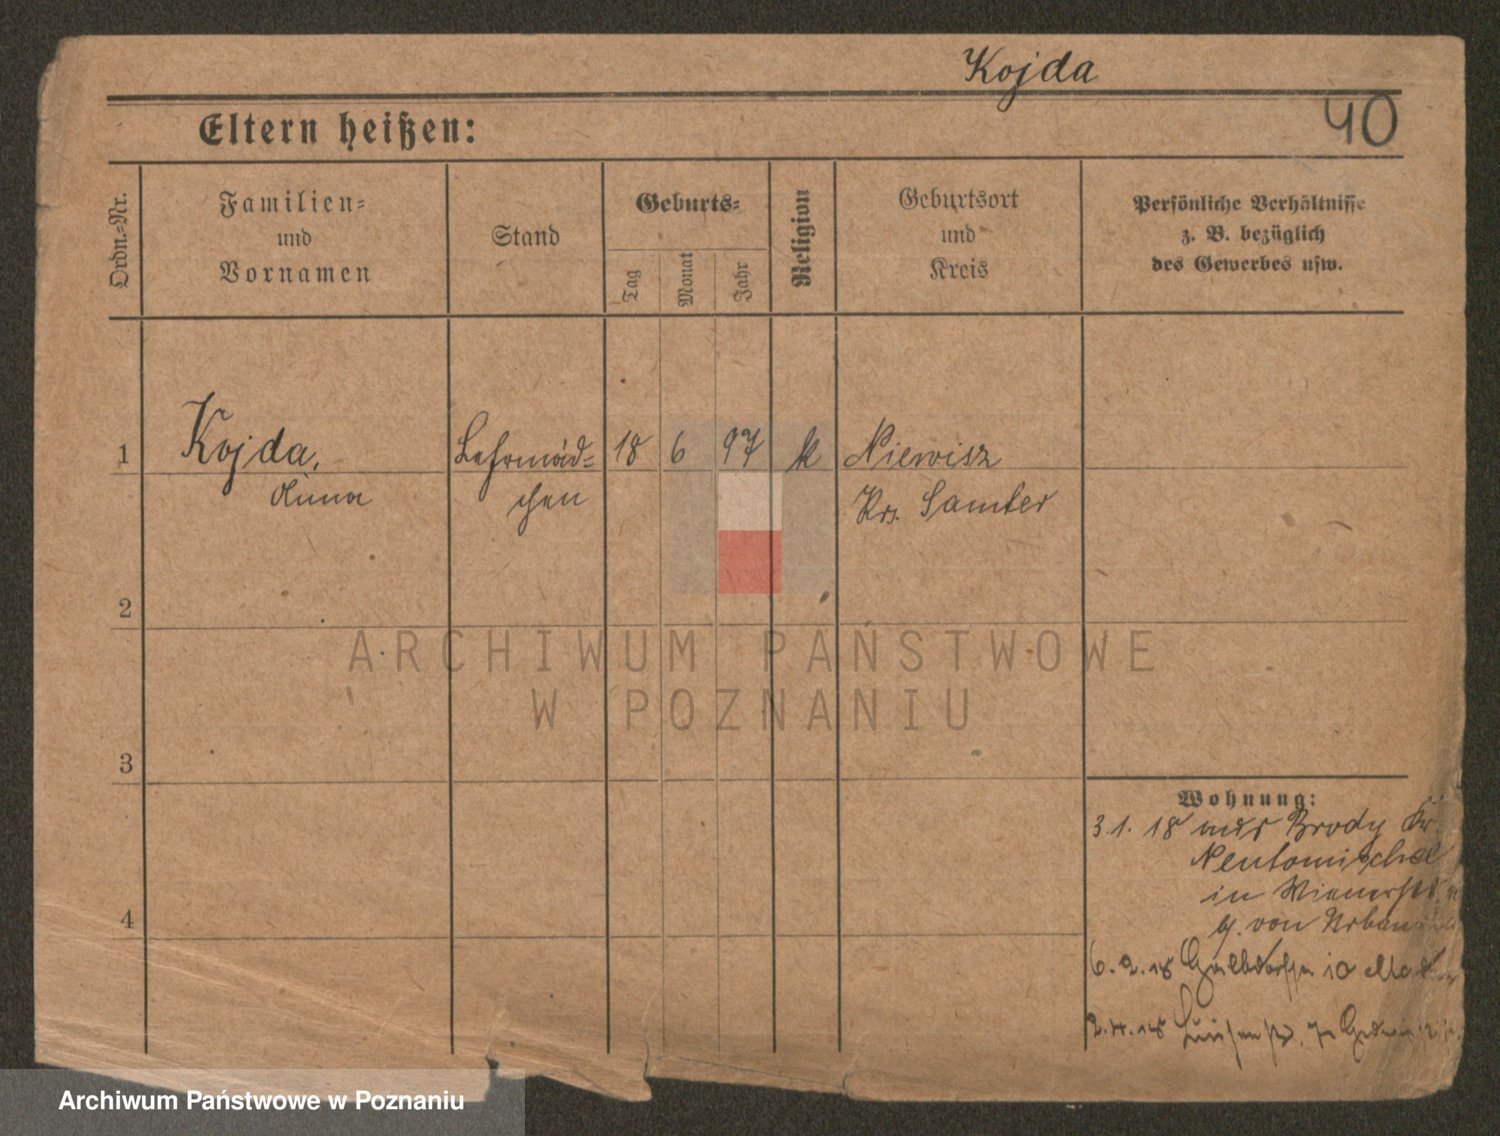 Kojda
40
Eltern heißen:
Ordn.=Nr.
Familien=
und
Vornamen
Stand
Geburts=
Tag
Monat
Jahr
Religion
Geburtsort
und
Kreis
Persönliche Verhältnisse
z. B. bezüglich
des Gewerbes usw.
1
Kojda,
Anna
Lehrmäd=
chen
18
6
97
k
Niewisz
Krs. Samter
2
ARCHIWUM PAŃSTWOWE
W POZNANIU
3
Wohnung:
3.1.18 aus Brody Kr.
Neutomischel
in
b. von
4
6.2.18 10
2.4.18
Archiwum Państwowe w Poznaniu